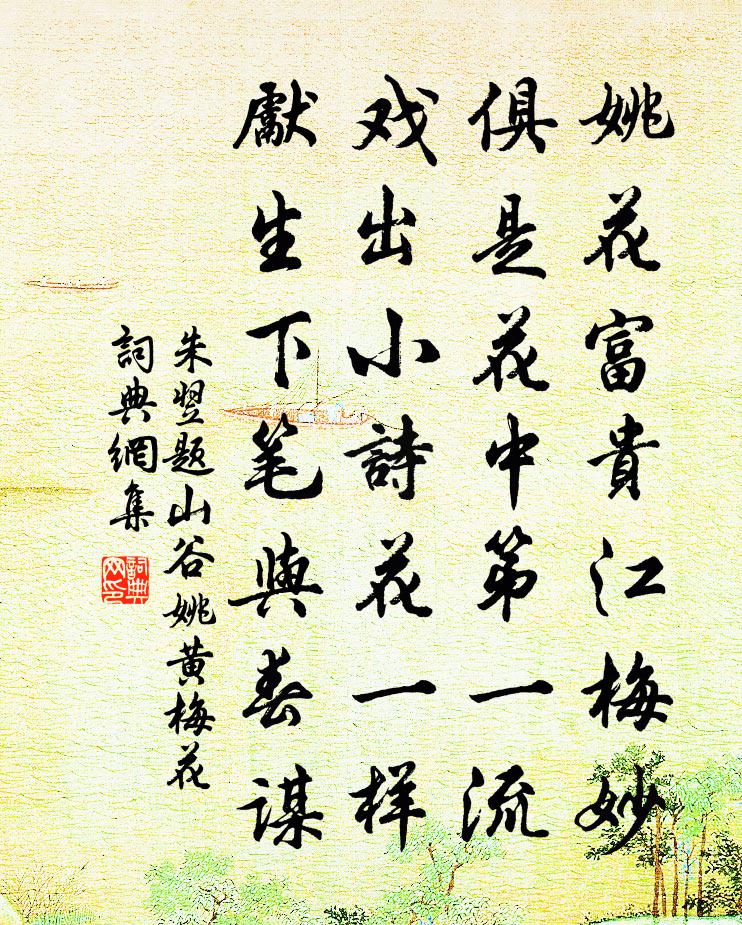 姚花富貴江梅妙
俱是花中第一流
戏出小詩花一样
獻生下笔與春謀
朱翌题山谷姚黄梅花
詞典網集
詞典
网印